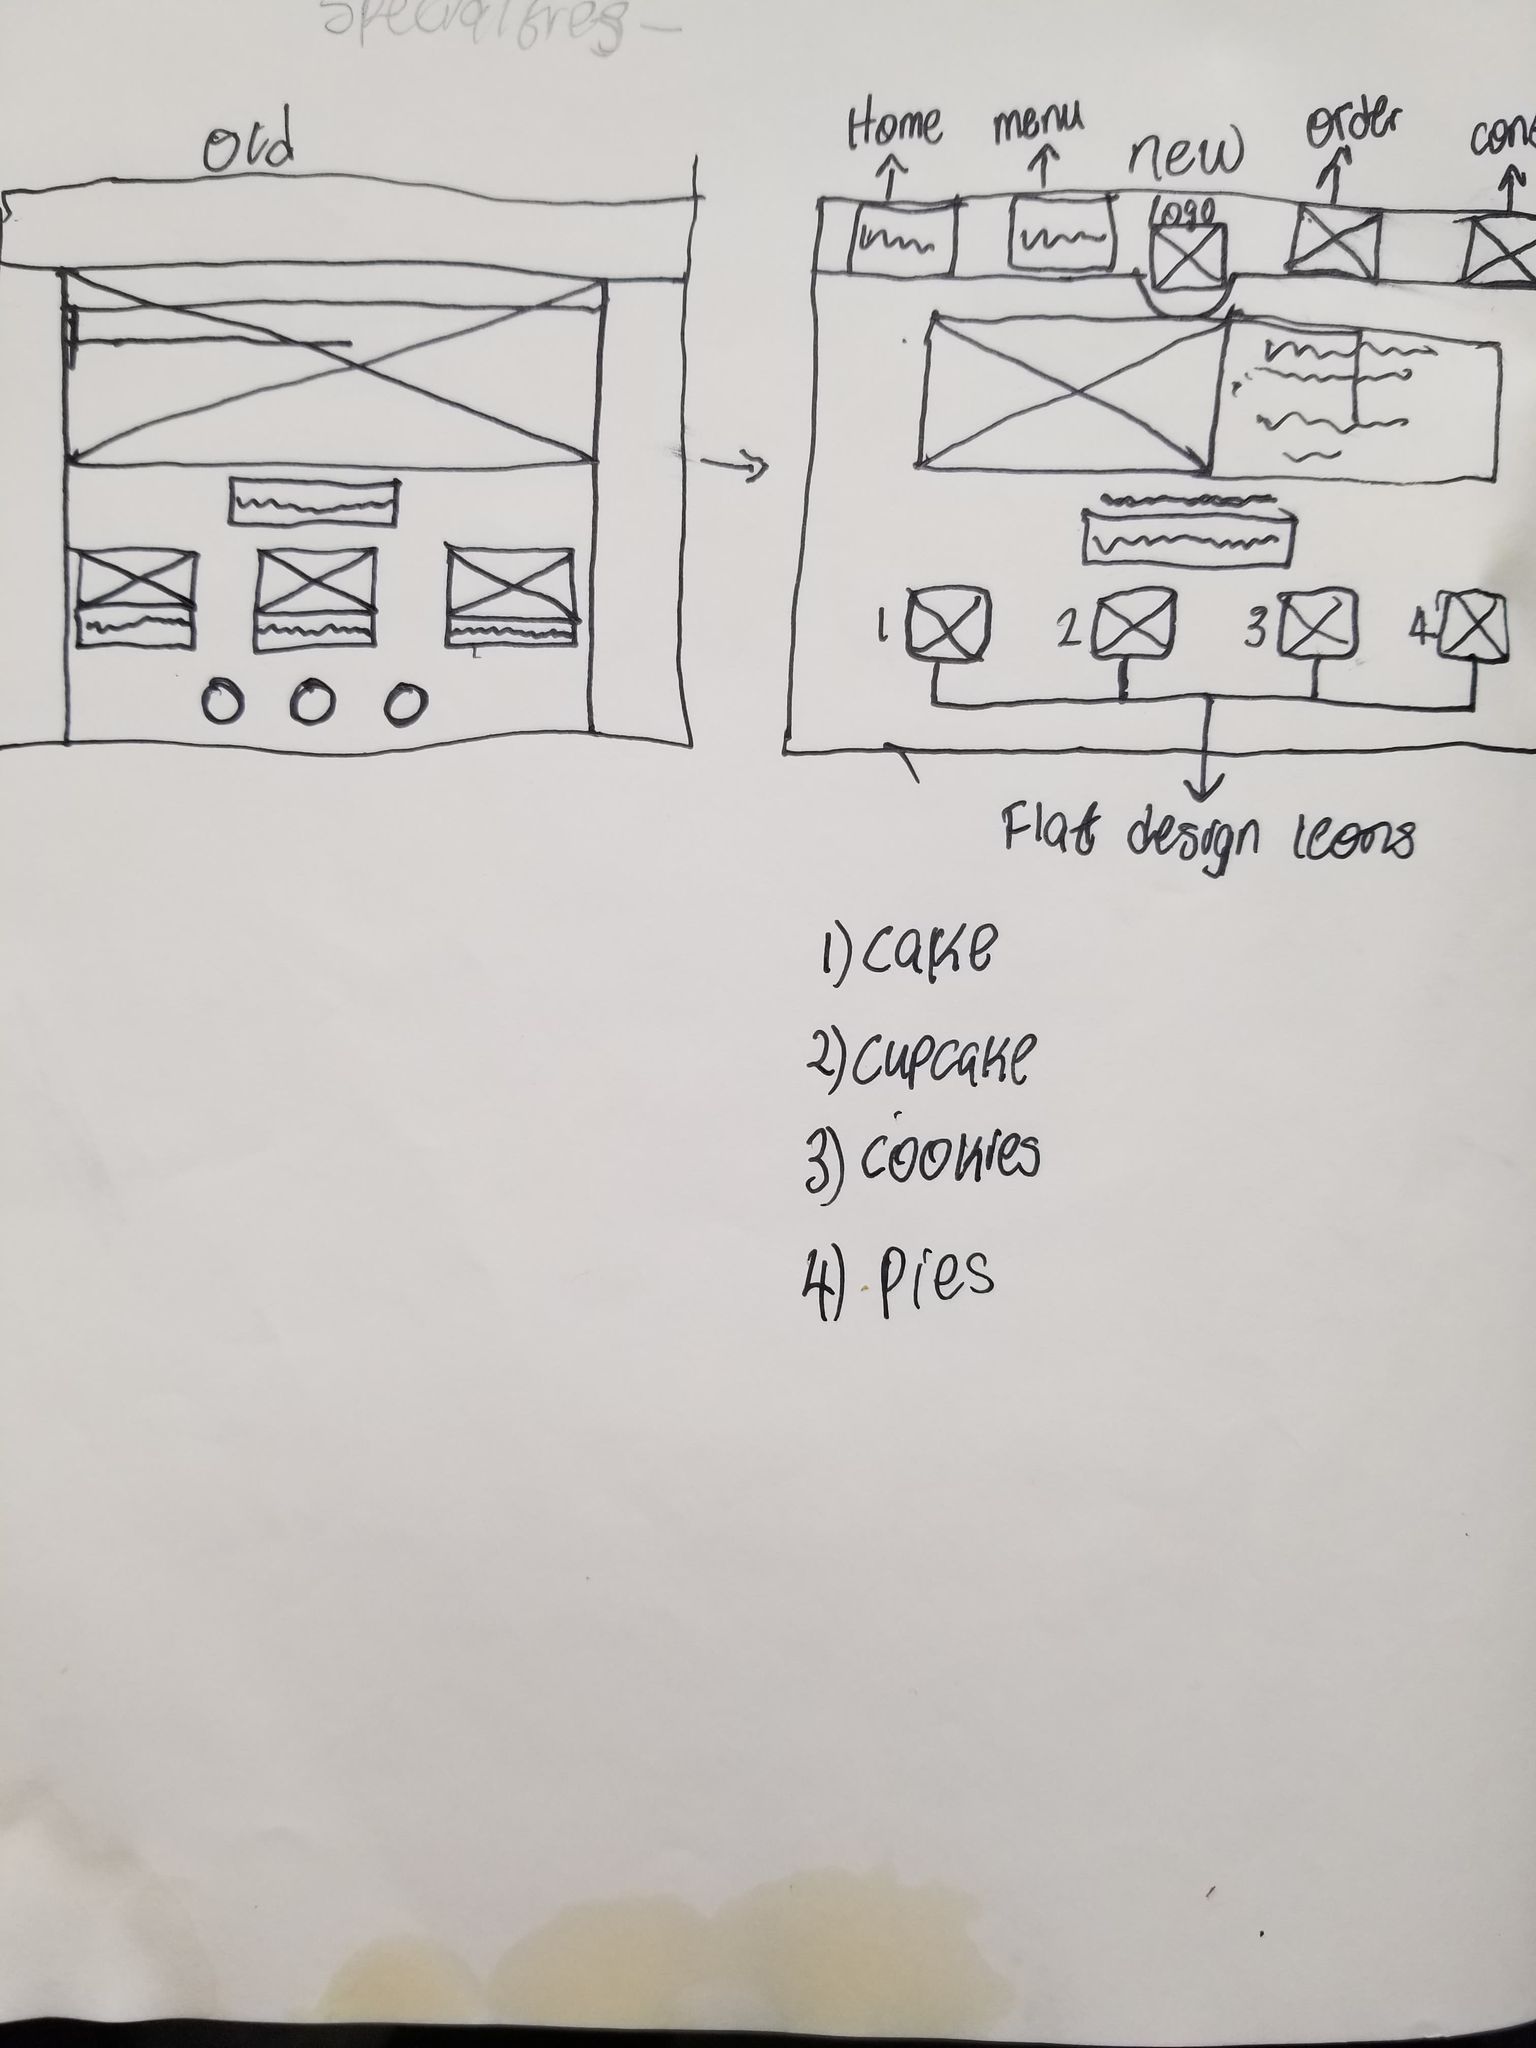 old
Home menu new order
Logo
1 2 3 4
Flat design icons
1) cake
2) cupcake
3) cookies
4) pies